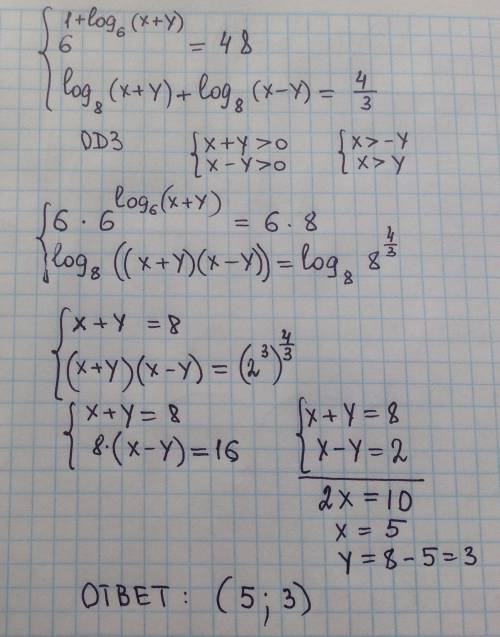 { 6^(1+log₆(x+y)) = 48
{ log₈(x+y) + log₈(x-y) = 4/3
ОДЗ { x+y>0 { x>-y
{ x-y>0 { x>y
{ 6 · 6^(log₆(x+y)) = 6 · 8
{ log₈((x+y)(x-y)) = log₈ 8^(4/3)
{ x+y = 8
{ (x+y)(x-y) = (2³)^(4/3)
{ x+y = 8
{ 8·(x-y) = 16
{ x+y = 8
{ x-y = 2
2x = 10
x = 5
y = 8-5 = 3
ОТВЕТ: (5; 3)